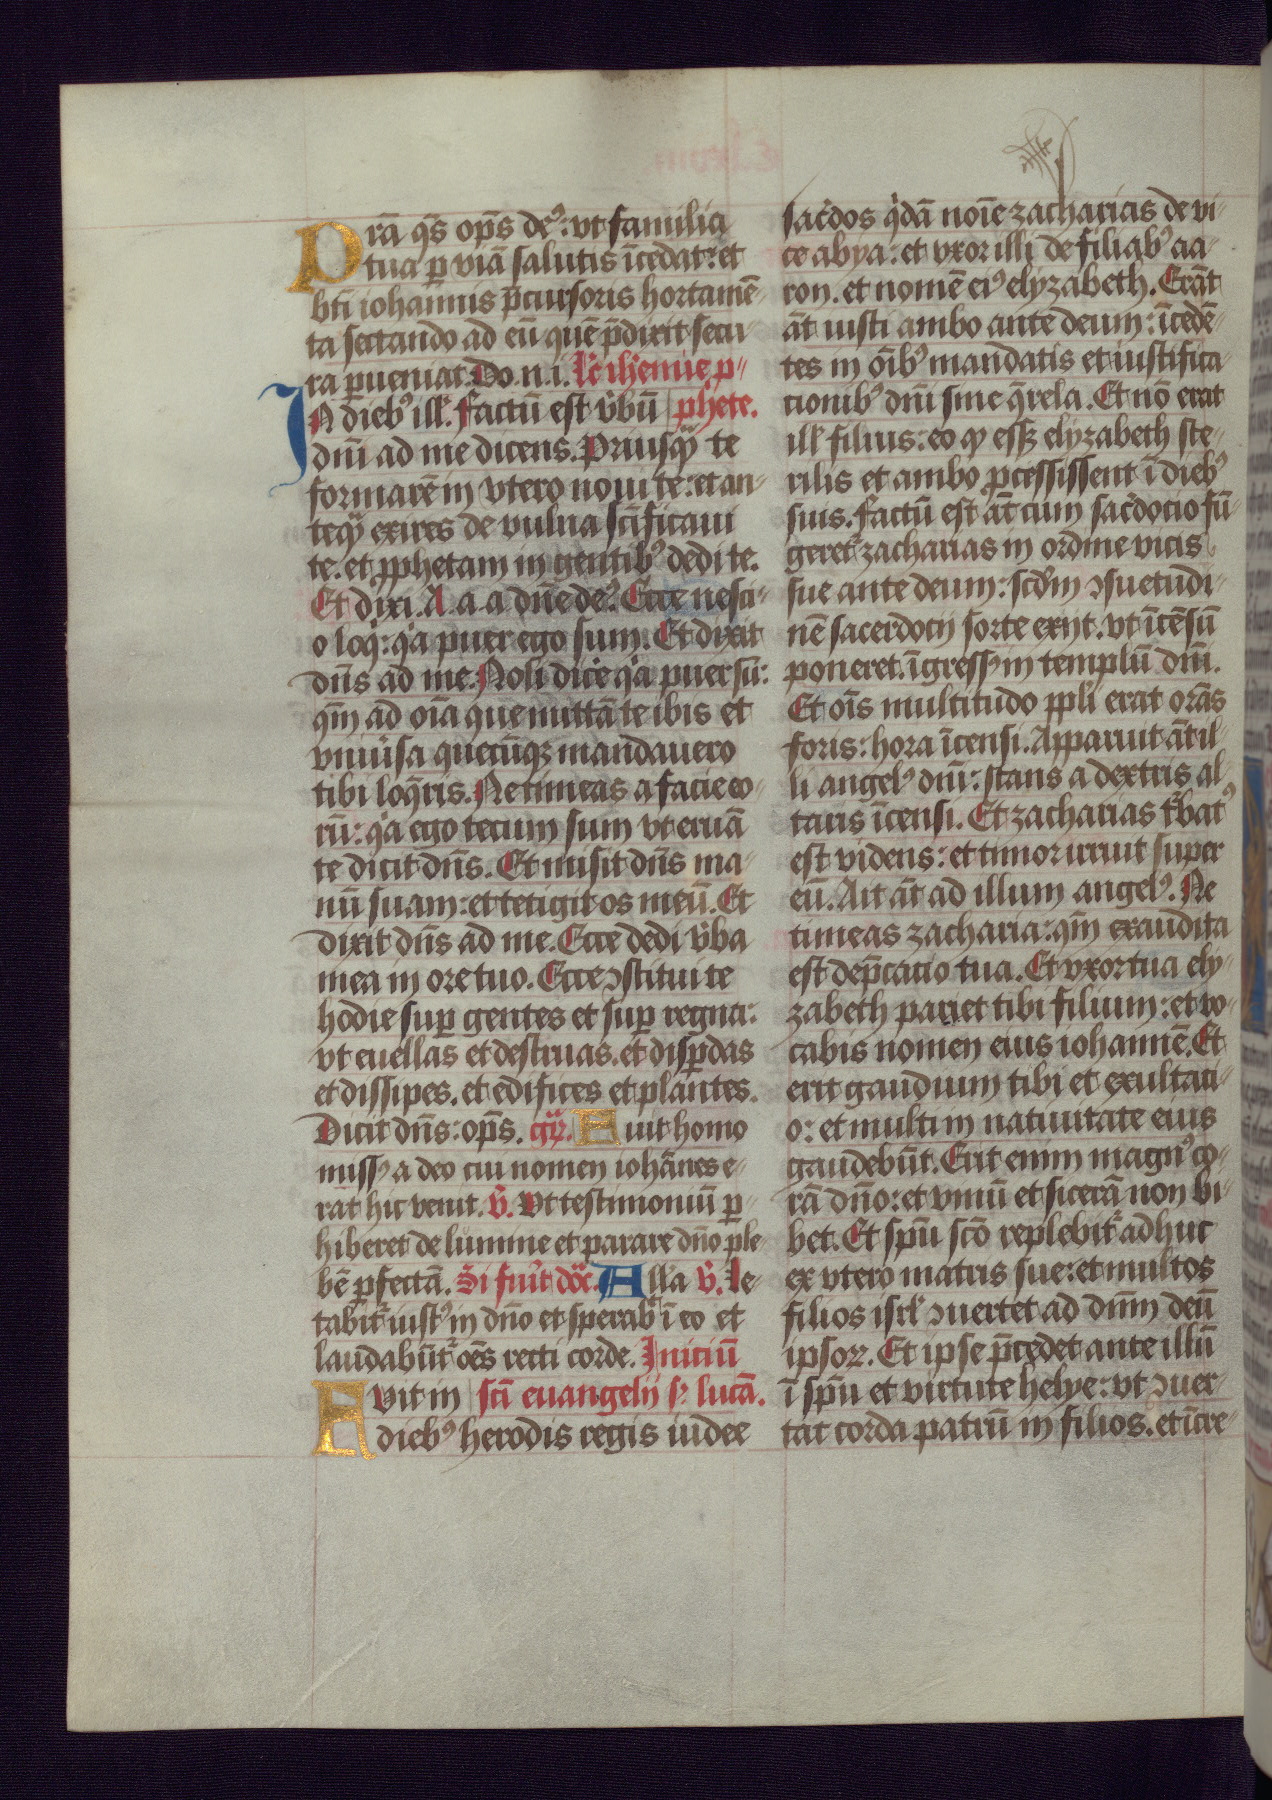 Prā q̄s op̄s deꝰ: vt familia
tua ꝑ viā salutis īcedat: et
bt̄i iohannis p̄cursoris hortamē-
ta sectando ad eū quē p̄dixit secu-
ra ꝑueniat. Do. n. i. Lc̄ ih̄emie p-
IN diebꝰ ill̄. Factū est v̄bū phete.
dn̄i ad me dicens. Priusqᷓ te
formarē in vtero noui te: et an-
teqᷓ exires de vulua sc̄ificaui
te. et ꝓphetam in gentibꝰ dedi te.
Et dixi. A a a dn̄e deꝰ. Ecce nesci-
o loqͥ: qͥa puer ego sum. Et dixit
dn̄s ad me. Noli dic̄e qͥa puer sū:
qm̄ ad oīa que mittā te ibis et
vniūsa quecūqꝫ mandauero
tibi loq̄ris. Ne timeas a facie eo-
rū: qͥa ego tecum sum vt eruā
te dicit dn̄s. Et misit dn̄s ma-
nū suam: et tetigit os meū. Et
dixit dn̄s ad me. Ecce dedi v̄ba
mea in ore tuo. Ecce ꝯstitui te
hodie suꝑ gentes et suꝑ regna:
vt euellas et destruas. et disꝑdas
et dissipes. et edifices et plantes.
Dicit dn̄s: op̄s. gͬ. Fuit homo
missꝰ a deo cui nomen iohānes e-
rat hic venit. v̄. Vt testimoniū ꝑ-
hiberet de lumine et parare dn̄o ple-
bē ꝑfectā. Si fuīt dōc. All̄a v̄. Le-
tabit᷑ iustꝰ in dn̄o et sperab᷑ ī eo et
laudabūt᷑ oēs recti corde. Iniciū
FVit in sc̄i euangelij ẜ lucā.
diebꝰ herodis regis iudee
sac̄dos qͥdā noīe zacharias de vi-
ce abya: et vxor illi de filiabꝰ aa-
ron. et nomē eiꝰ elyzabeth. Erāt
āt iusti ambo ante deum: īcedē-
tes in oībꝰ mandatis et iustifica-
cionibꝰ dn̄i sine q̄rela. Et nō erat
ill̄ filius: eo ꝙ essꝫ elyzabeth ste-
rilis et ambo ꝓcessissent ī diebꝰ
suis. Factū est āt cum sac̄docio fū-
geret᷑ zacharias in ordine vicis
sue ante deum: scd̄m ꝯsuetudi-
nē sacerdocij sorte exijt. vt īcēsū
poneret. īgressꝰ in templū dn̄i.
Et oīs multitudo ppl̄i erat orās
foris: hora īcensi. Apparuit āt il-
li angelꝰ dn̄i: stans a dextris al-
taris īcensi. Et zacharias tͬbatꝰ
est videns: et timor irruit super
eū. Ait āt ad illum angelꝰ. Ne
timeas zacharia: qm̄ exaudita
est dep̄catio tua. Et vxor tua ely-
zabeth pariet tibi filium: et vo-
cabis nomen eius iohannē. Et
erit gaudium tibi et exultaci-
o: et multi in natiuitate eius
gaudebūt. Erit enim magnꝰ co-
rā dn̄o: et vinū et sicerā non bi-
bet. Et sp̄u sc̄o replebit᷑ adhuc
ex vtero matris sue: et multos
filios isrl̄ ꝯuertet ad dn̄m deū
ipsoꝝ. Et ipse p̄cedet ante illū
ī sp̄u et virtute helye: vt ꝯuer-
tat corda patrū in filios. et īcre-